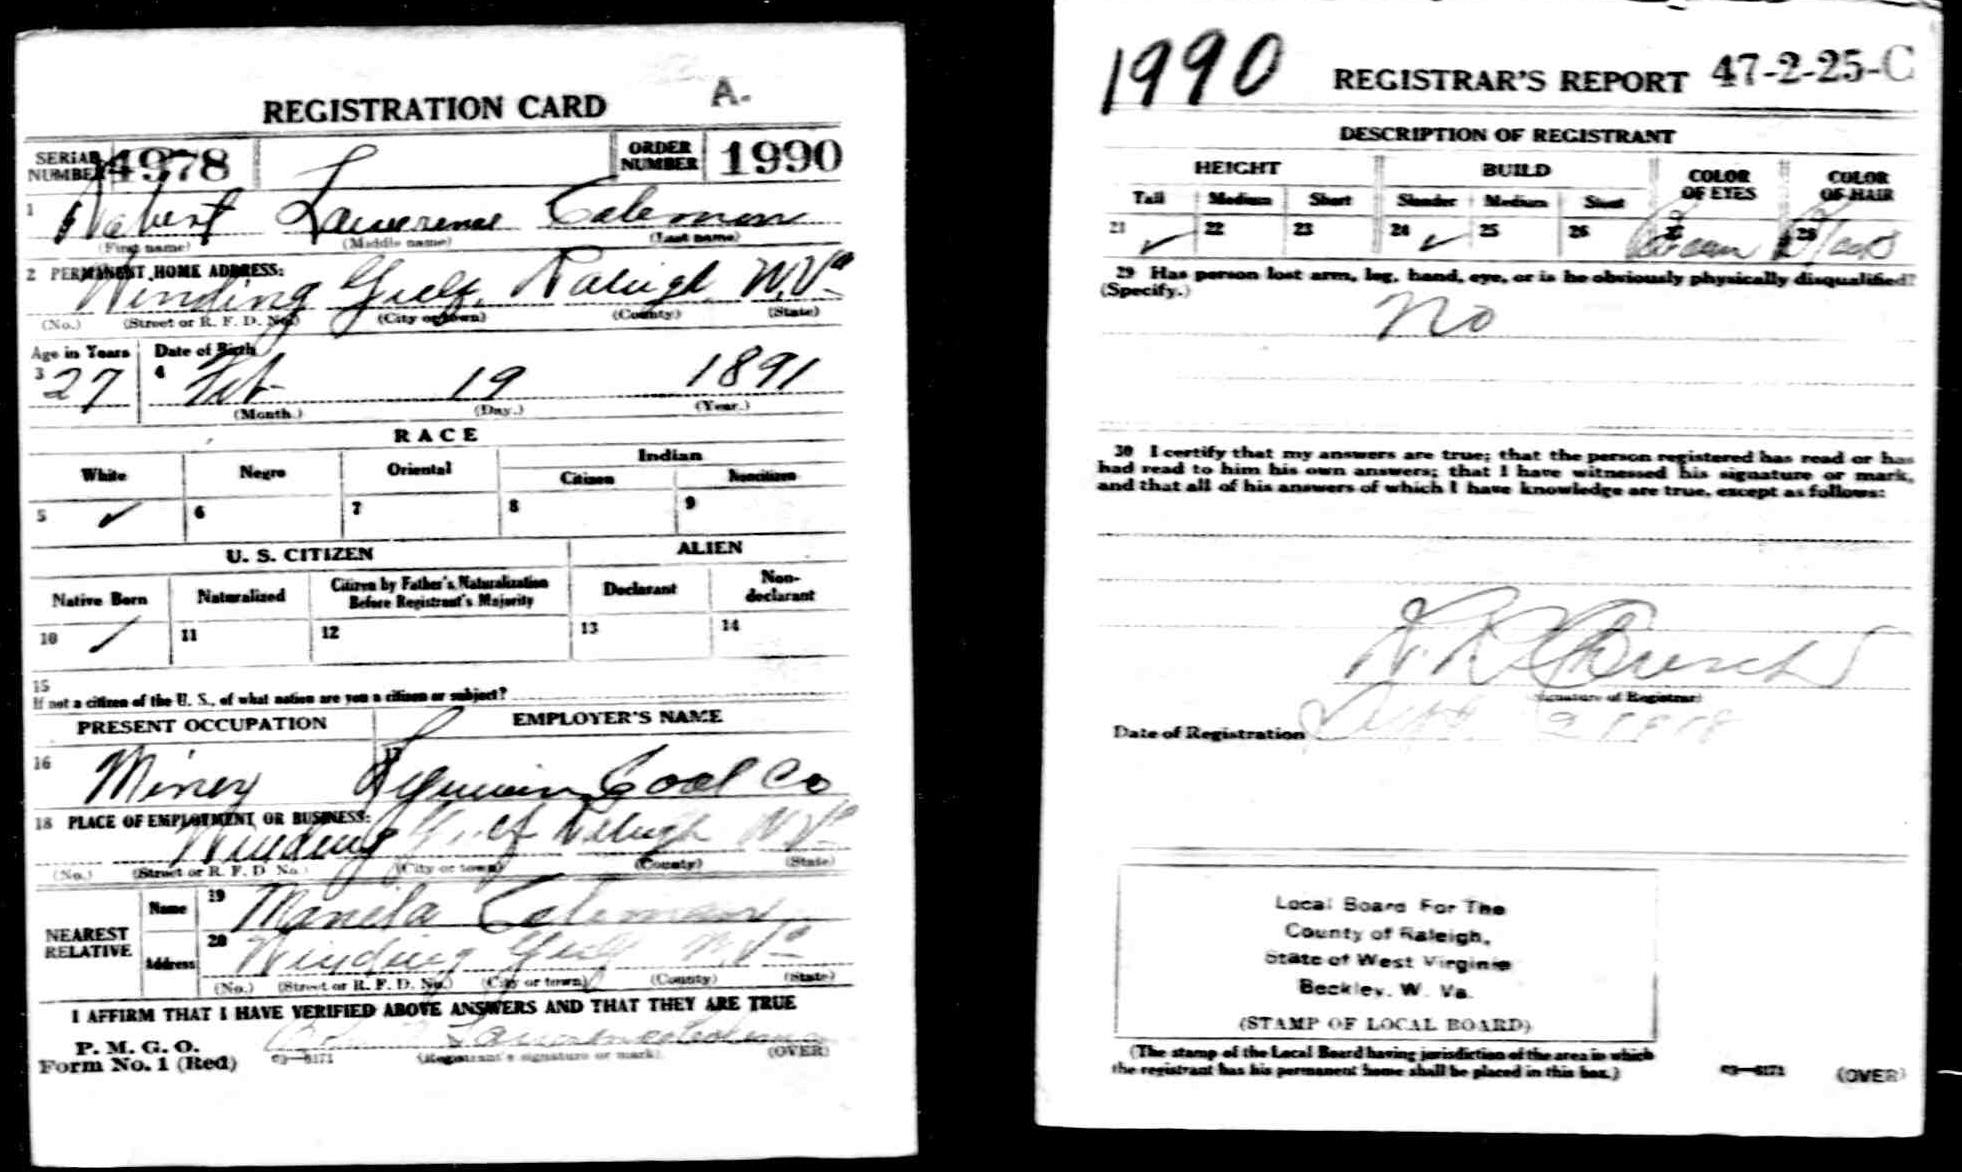 REGISTRATION CARD A.
SERIAL NUMBER 4978 ORDER NUMBER 1990
1 Robert Lawrence Coleman
(First name) (Middle name) (Last name)
2 PERMANENT HOME ADDRESS:
Winding Gulf, Raleigh W.Va
(No.) (Street or R. F. D. No.) (City or town) (County) (State)
Age in Years Date of Birth
3 27 4 Feb 19 1891
(Month.) (Day.) (Year.)
RACE
White Negro Oriental Indian
Citizen Noncitizen
5 ✓ 6 7 8 9
U. S. CITIZEN ALIEN
Native Born Naturalized Citizen by Father's Naturalization Before Registrant's Majority Declarant Non-declarant
10 ✓ 11 12 13 14
15
If not a citizen of the U. S., of what nation are you a citizen or subject?
PRESENT OCCUPATION EMPLOYER'S NAME
16 Miner 17 Coal Co
18 PLACE OF EMPLOYMENT OR BUSINESS:
Winding Gulf Raleigh W.Va
(No.) (Street or R. F. D. No.) (City or town) (County) (State)
NEAREST RELATIVE
Name 19 Manela Coleman
Address 20 Winding Gulf W.Va
(No.) (Street or R. F. D. No.) (City or town) (County) (State)
I AFFIRM THAT I HAVE VERIFIED ABOVE ANSWERS AND THAT THEY ARE TRUE
P. M. G. O.
Form No. 1 (Red) 03—6171 Lawrence Coleman
(Registrant's signature or mark) (OVER)
1990 REGISTRAR'S REPORT 47-2-25-C
DESCRIPTION OF REGISTRANT
HEIGHT BUILD COLOR OF EYES COLOR OF HAIR
Tall Medium Short Slender Medium Stout
21 ✓ 22 23 24 ✓ 25 26 27 Brown 28 Black
29 Has person lost arm, leg, hand, eye, or is he obviously physically disqualified?
(Specify.)
No
30 I certify that my answers are true; that the person registered has read or has
had read to him his own answers; that I have witnessed his signature or mark,
and that all of his answers of which I have knowledge are true, except as follows:
(Signature of Registrar)
Date of Registration Sept 12 1918
Local Board For The
County of Raleigh,
State of West Virginia
Beckley, W. Va.
(STAMP OF LOCAL BOARD)
(The stamp of the Local Board having jurisdiction of the area in which
the registrant has his permanent home shall be placed in this box.)
03—6171 (OVER)